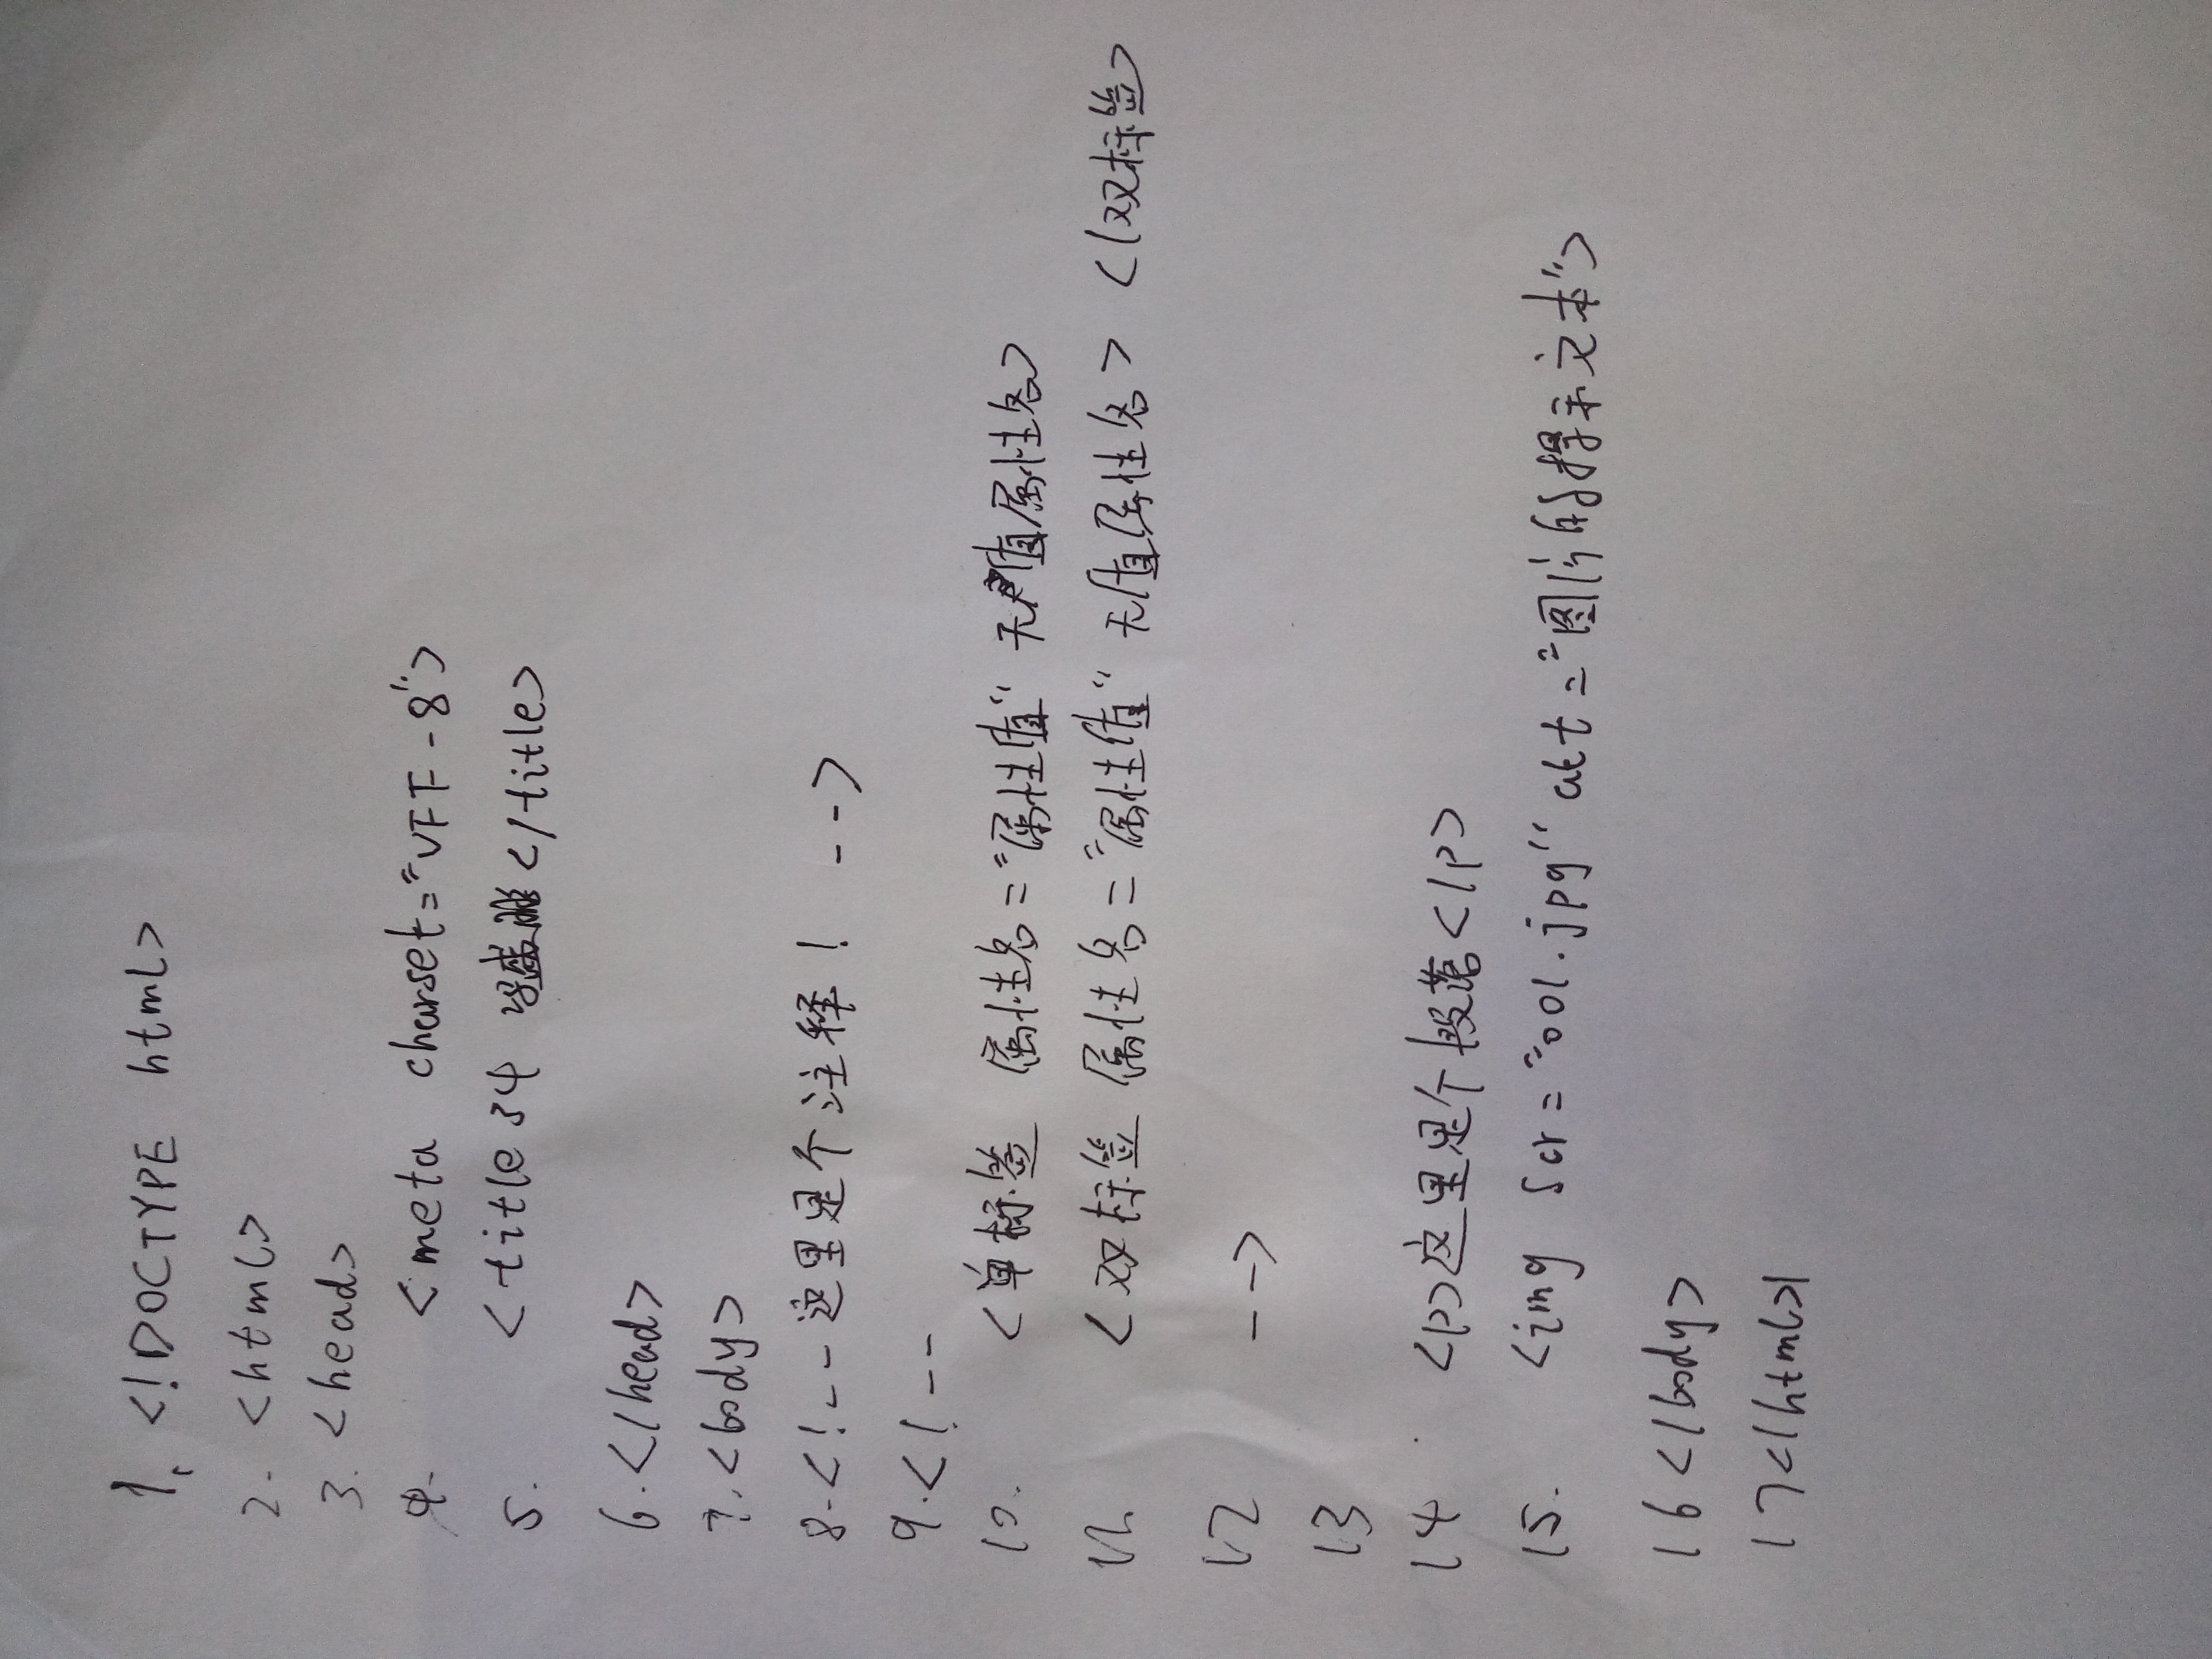 1. <!DOCTYPE html>
2. <html>
3. <head>
4. <meta charset="VFF-8">
5. <title 34 </title>
6. </head>
7. <body>
8. <!-- 这里是个注释! -->
9. <!--
10. <单标签 属性名="属性值" 无值属性名>
11. <双标签 属性名="属性值" 无值属性名> </双标签>
12 -->
13
14 <p>这里是个段落</p>
15. <img scr="001.jpg" alt="图片的提示文本">
16 </body>
17 </html>